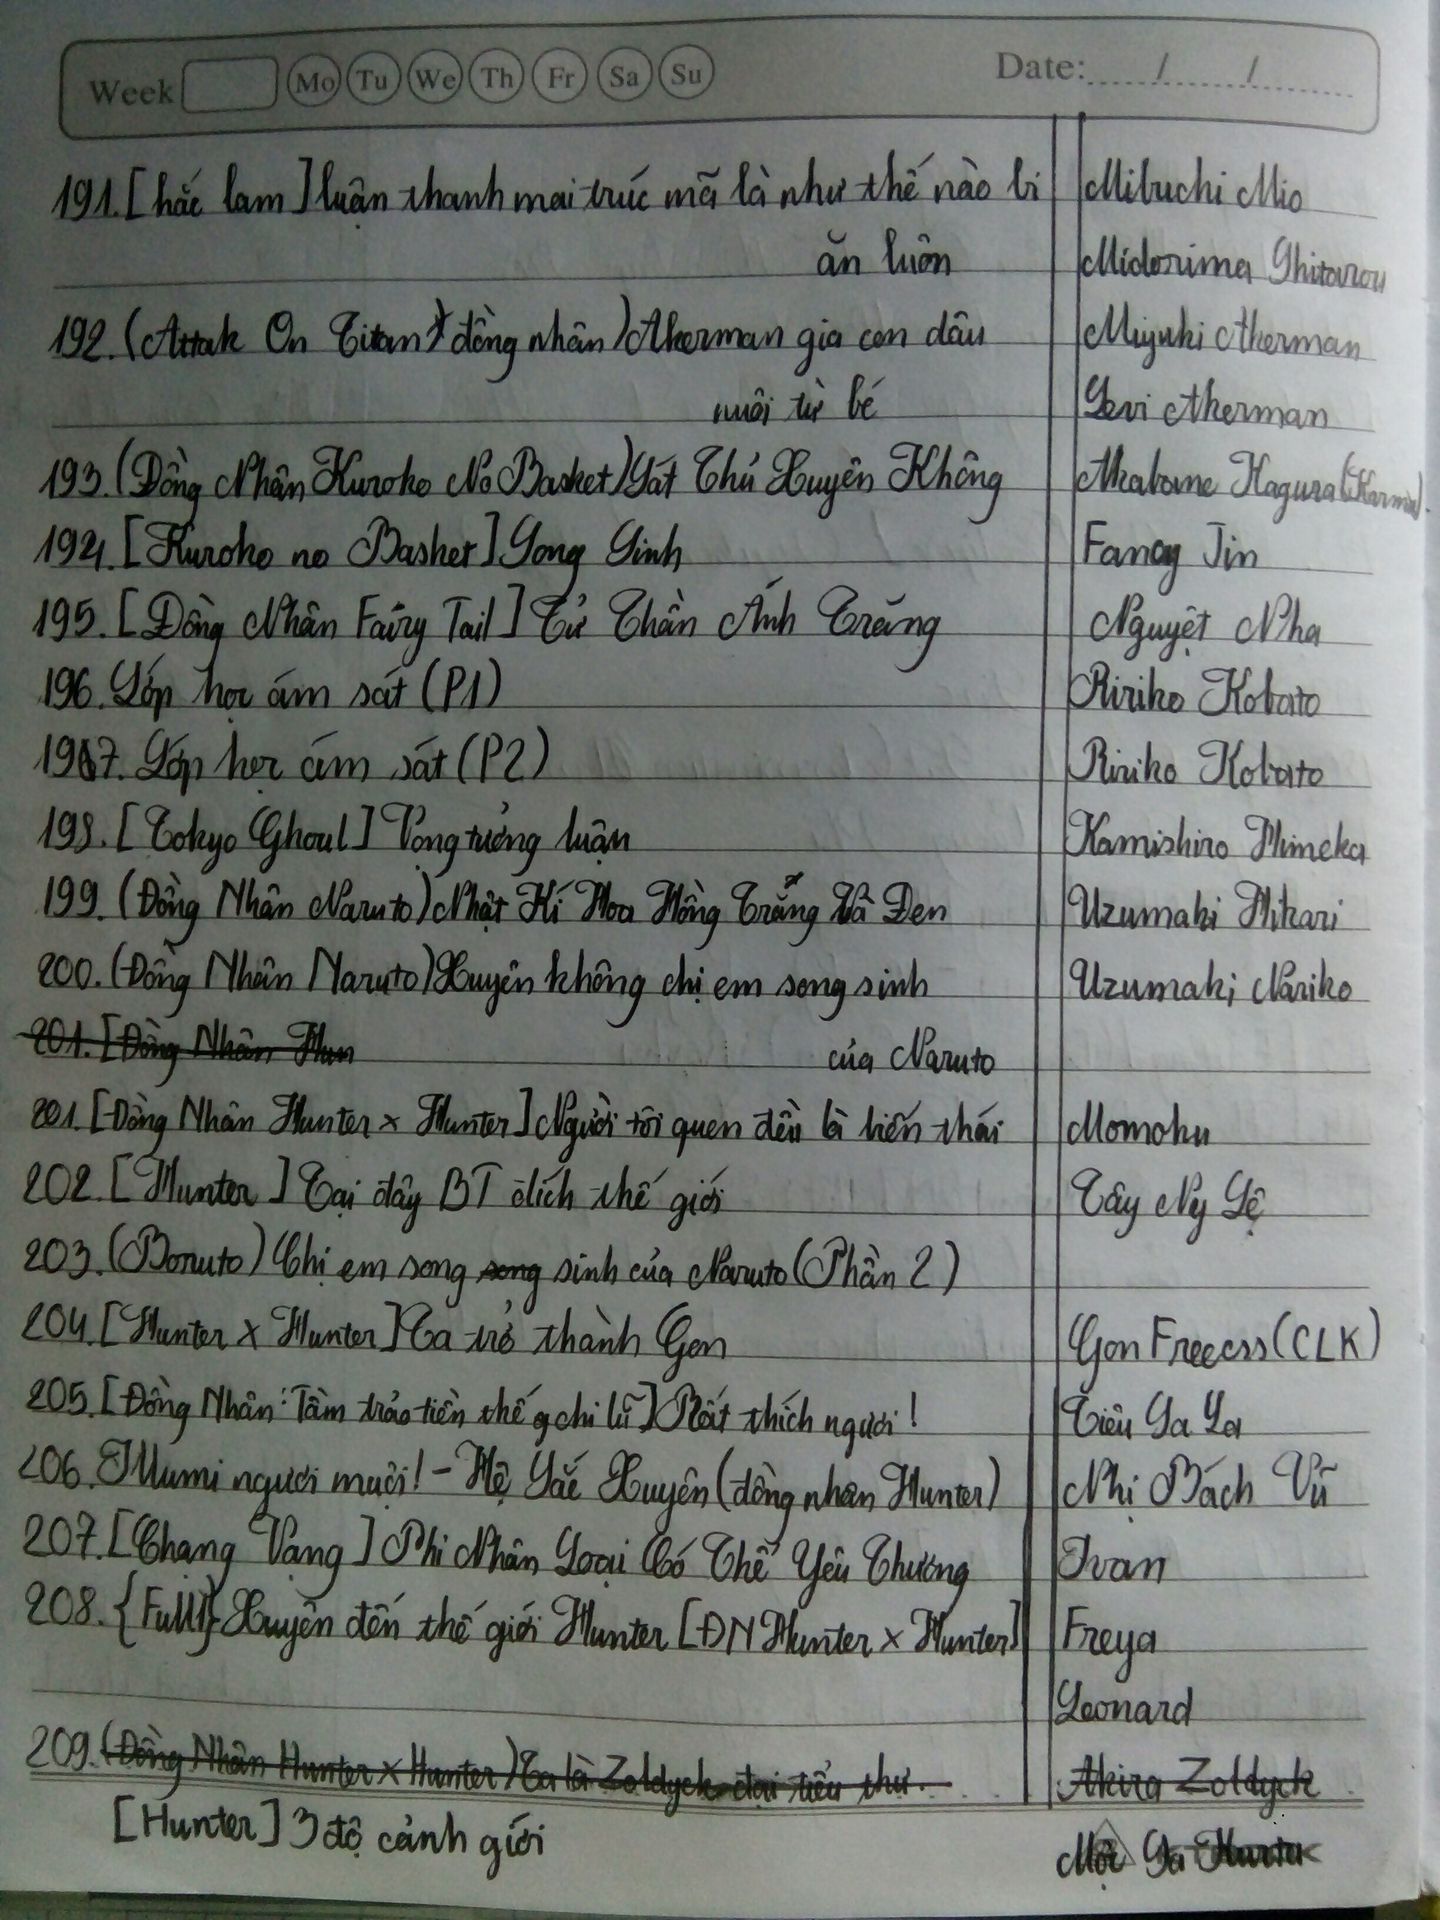 Week Mo Tu We Th Fr Sa Su Date: / /
191. [hắc lam] luận thanh mai trúc mã là như thế nào bị Mibuchi Mio
ăn luôn Midorima Shitarou
192. (Attak On Titan) đồng nhân) Akerman gia con dâu Miyuki Akerman
nuôi từ bé Levi Akerman
193. (Đồng Nhân Kuroko No Basket) Sát Thủ Xuyên Không Akabane Kagura (Karma).
194. [Kuroko no Basket] Song Sinh Fancy Jin
195. [Đồng Nhân Fairy Tail] Tử Thần Ánh Trăng Nguyệt Nha
196. Lớp học ám sát (P1) Ririko Kobato
197. Lớp học ám sát (P2) Ririko Kobato
198. [Tokyo Ghoul] Vọng tưởng luận Kamishiro Himeka
199. (Đồng Nhân Naruto) Nhật Kí Hoa Hồng Trắng Và Đen Uzumaki Hikari
200. (Đồng Nhân Naruto) Xuyên không chị em song sinh Uzumaki Nariko
201. [Đồng Nhân Hun của Naruto
201. [Đồng Nhân Hunter x Hunter] Người tôi quen đều là biến thái Momoku
202. [Hunter] Tại đây BT đích thế giới Tây Ny Lệ
203. (Boruto) Chị em song song sinh của Naruto (Phần 2)
204. [Hunter x Hunter] Ta trở thành Gon Gon Freecss (CLK)
205. [Đồng Nhân: Tầm trảo tiền thế g chi lữ] Rất thích ngươi! Tiêu Sa Sa
206. Illumi ngươi muội! - Hệ Sắc Xuyên (đồng nhân Hunter) Nhị Bách Vũ
207. [Chạng Vạng] Phi Nhân Loại Có Thể Yêu Thương Ivan
208. {Full} Xuyên đến thế giới Hunter [ĐN Hunter x Hunter] Freya
Leonard
209. (Đồng Nhân Hunter x Hunter) Ta là Zoldyck đại tiểu thư. Akira Zoldyck
[Hunter] 3 độ cảnh giới